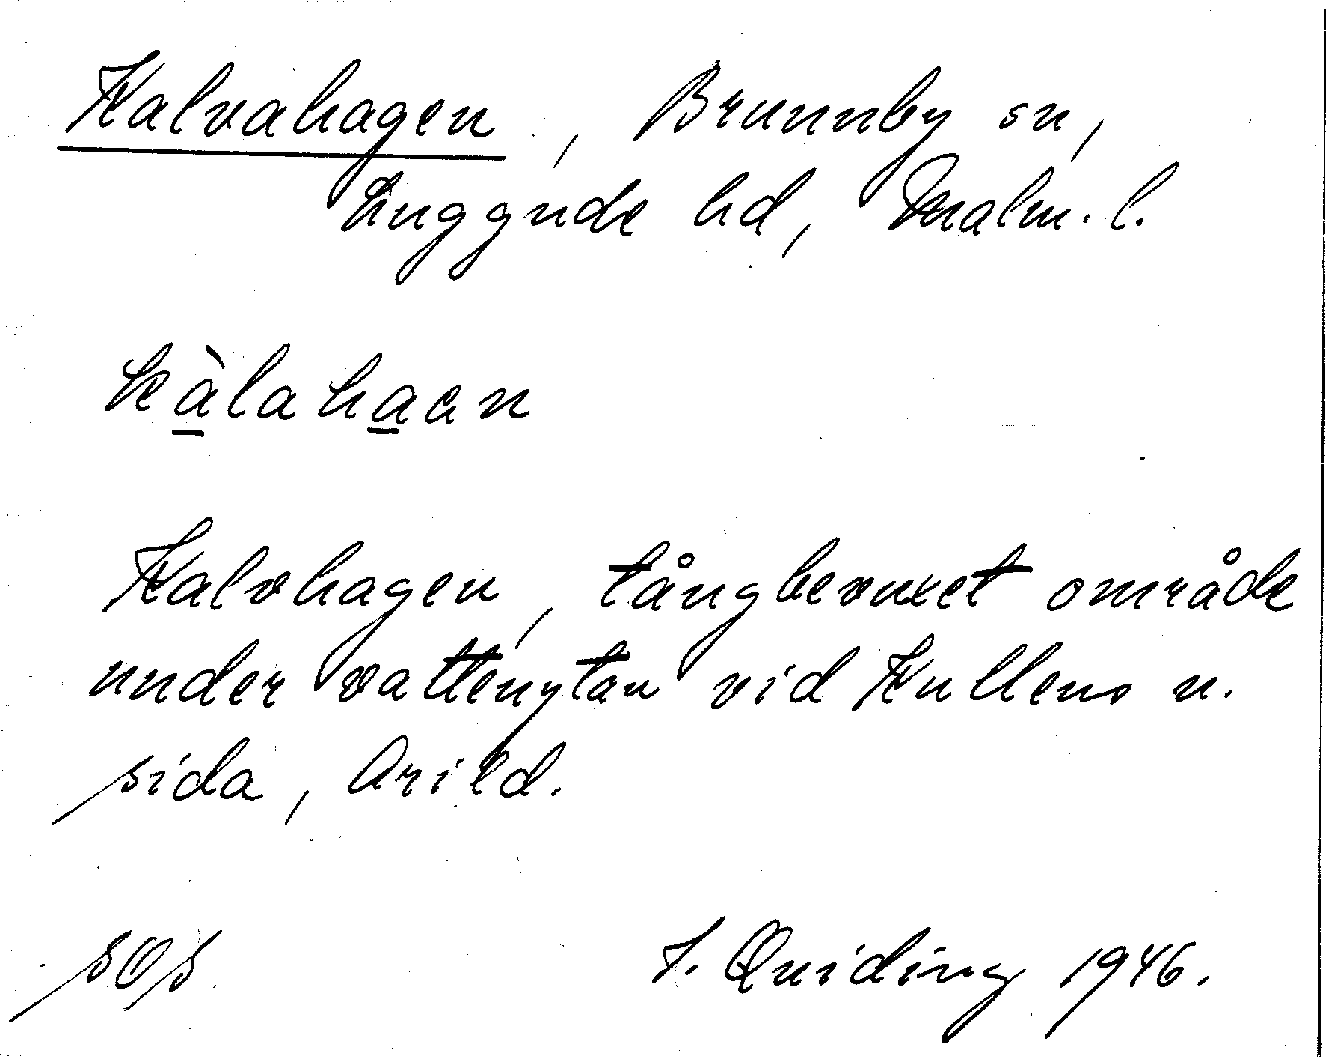 Kalvahagen, Brunnby sn,
Luggude hd, Malm. l.
kàlahaan
Kalvhagen, tångbevuxet område
under vattenytan vid Kullens n.
sida, Arild.
SOS
J. Quiding 1946.